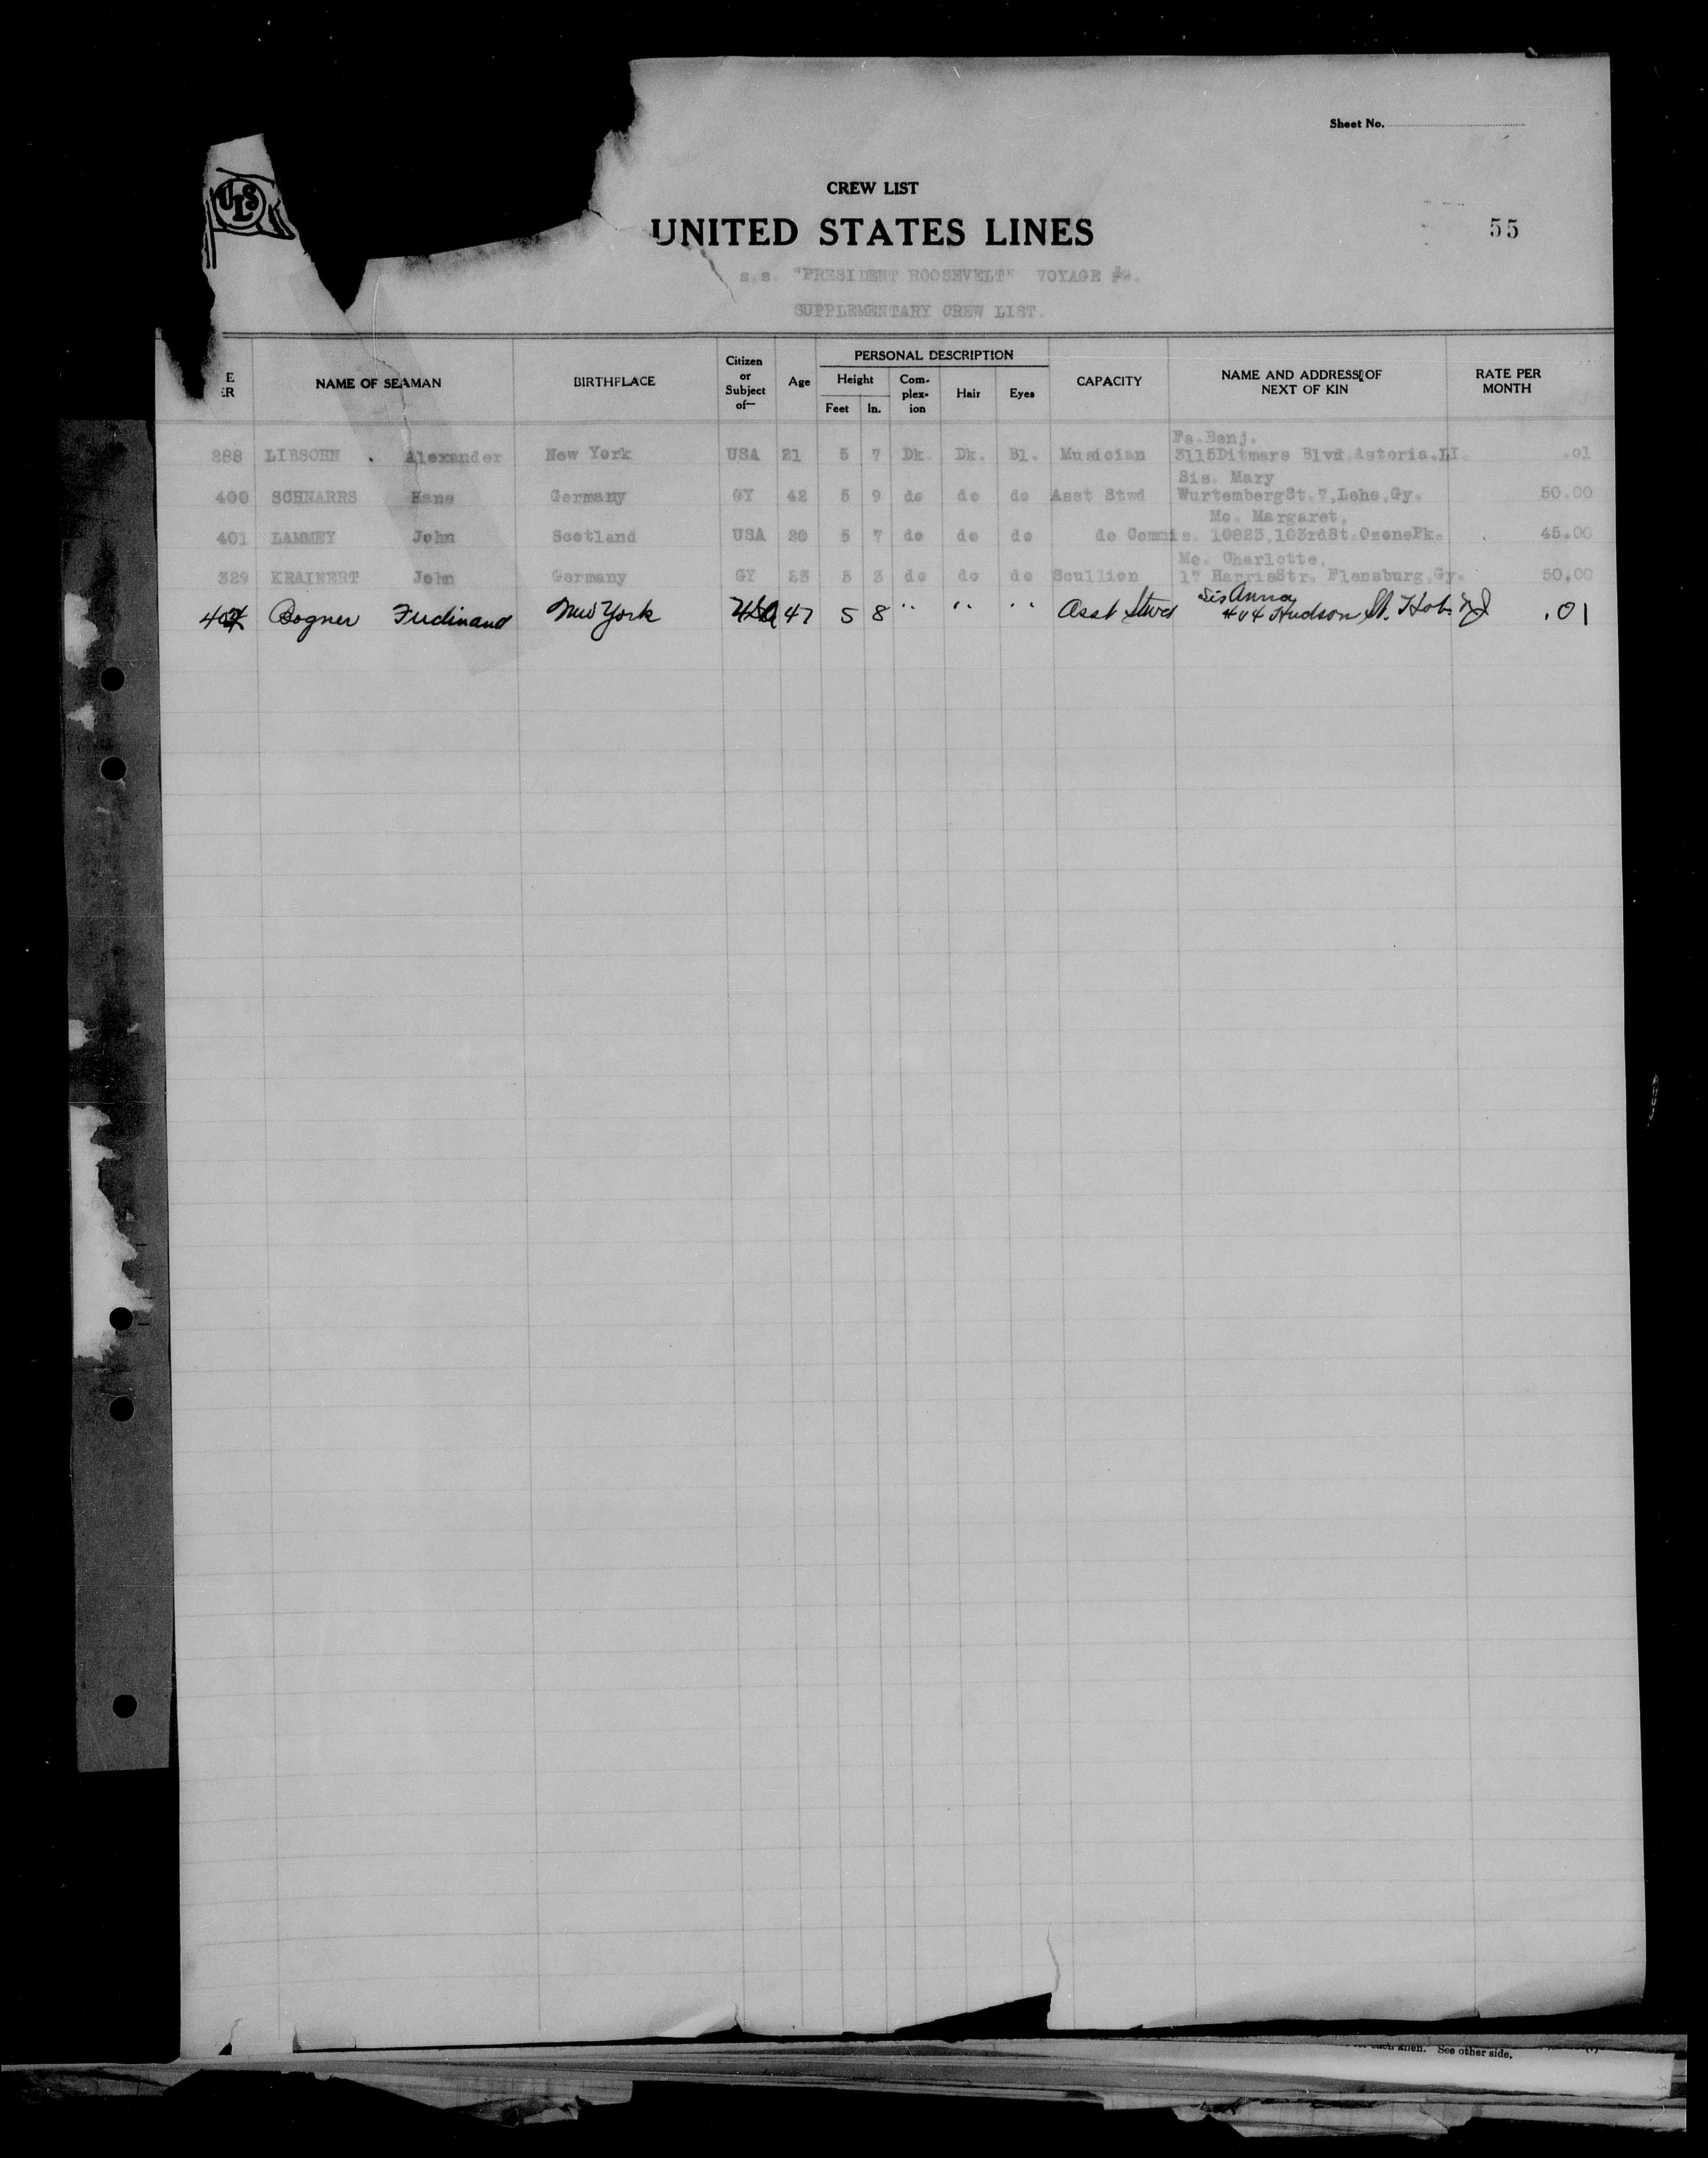 Sheet No.
ULS
CREW LIST
UNITED STATES LINES
55
s.s. "PRESIDENT ROOSEVELT" VOYAGE
SUPPLEMENTARY CREW LIST.
E
ER
NAME OF SEAMAN
BIRTHPLACE
Citizen
or
Subject
of—
Age
PERSONAL DESCRIPTION
Height
Feet In.
Com-
plex-
ion
Hair
Eyes
CAPACITY
NAME AND ADDRESS OF
NEXT OF KIN
RATE PER
MONTH
Fa. Benj.
288 LIBSOHN . Alexander New York USA 21 5 7 Dk. Dk. Bl. Musician 3115Ditmars Blvd.Astoria.LI. .01
Sis. Mary
400 SCHNARRS Hans Germany GY 42 5 9 do do do Asst Stwd WurtembergSt.7,Lehe,Gy. 50.00
Mo. Margaret,
401 LAMMEY John Scotland USA 20 5 7 do do do do Commis. 10823,103rdSt.OzonePk. 45.00
Mo. Charlotte,
329 KRAINERT John Germany GY 23 5 3 do do do Scullion 17 HarrisStr. Flensburg,Gy. 50.00
Sis Anna
Bogner Ferdinand New York USA 47 5 8 " " " Asst Stwd 404 Hudson St. Hob. NJ .01
each alien. See other side.